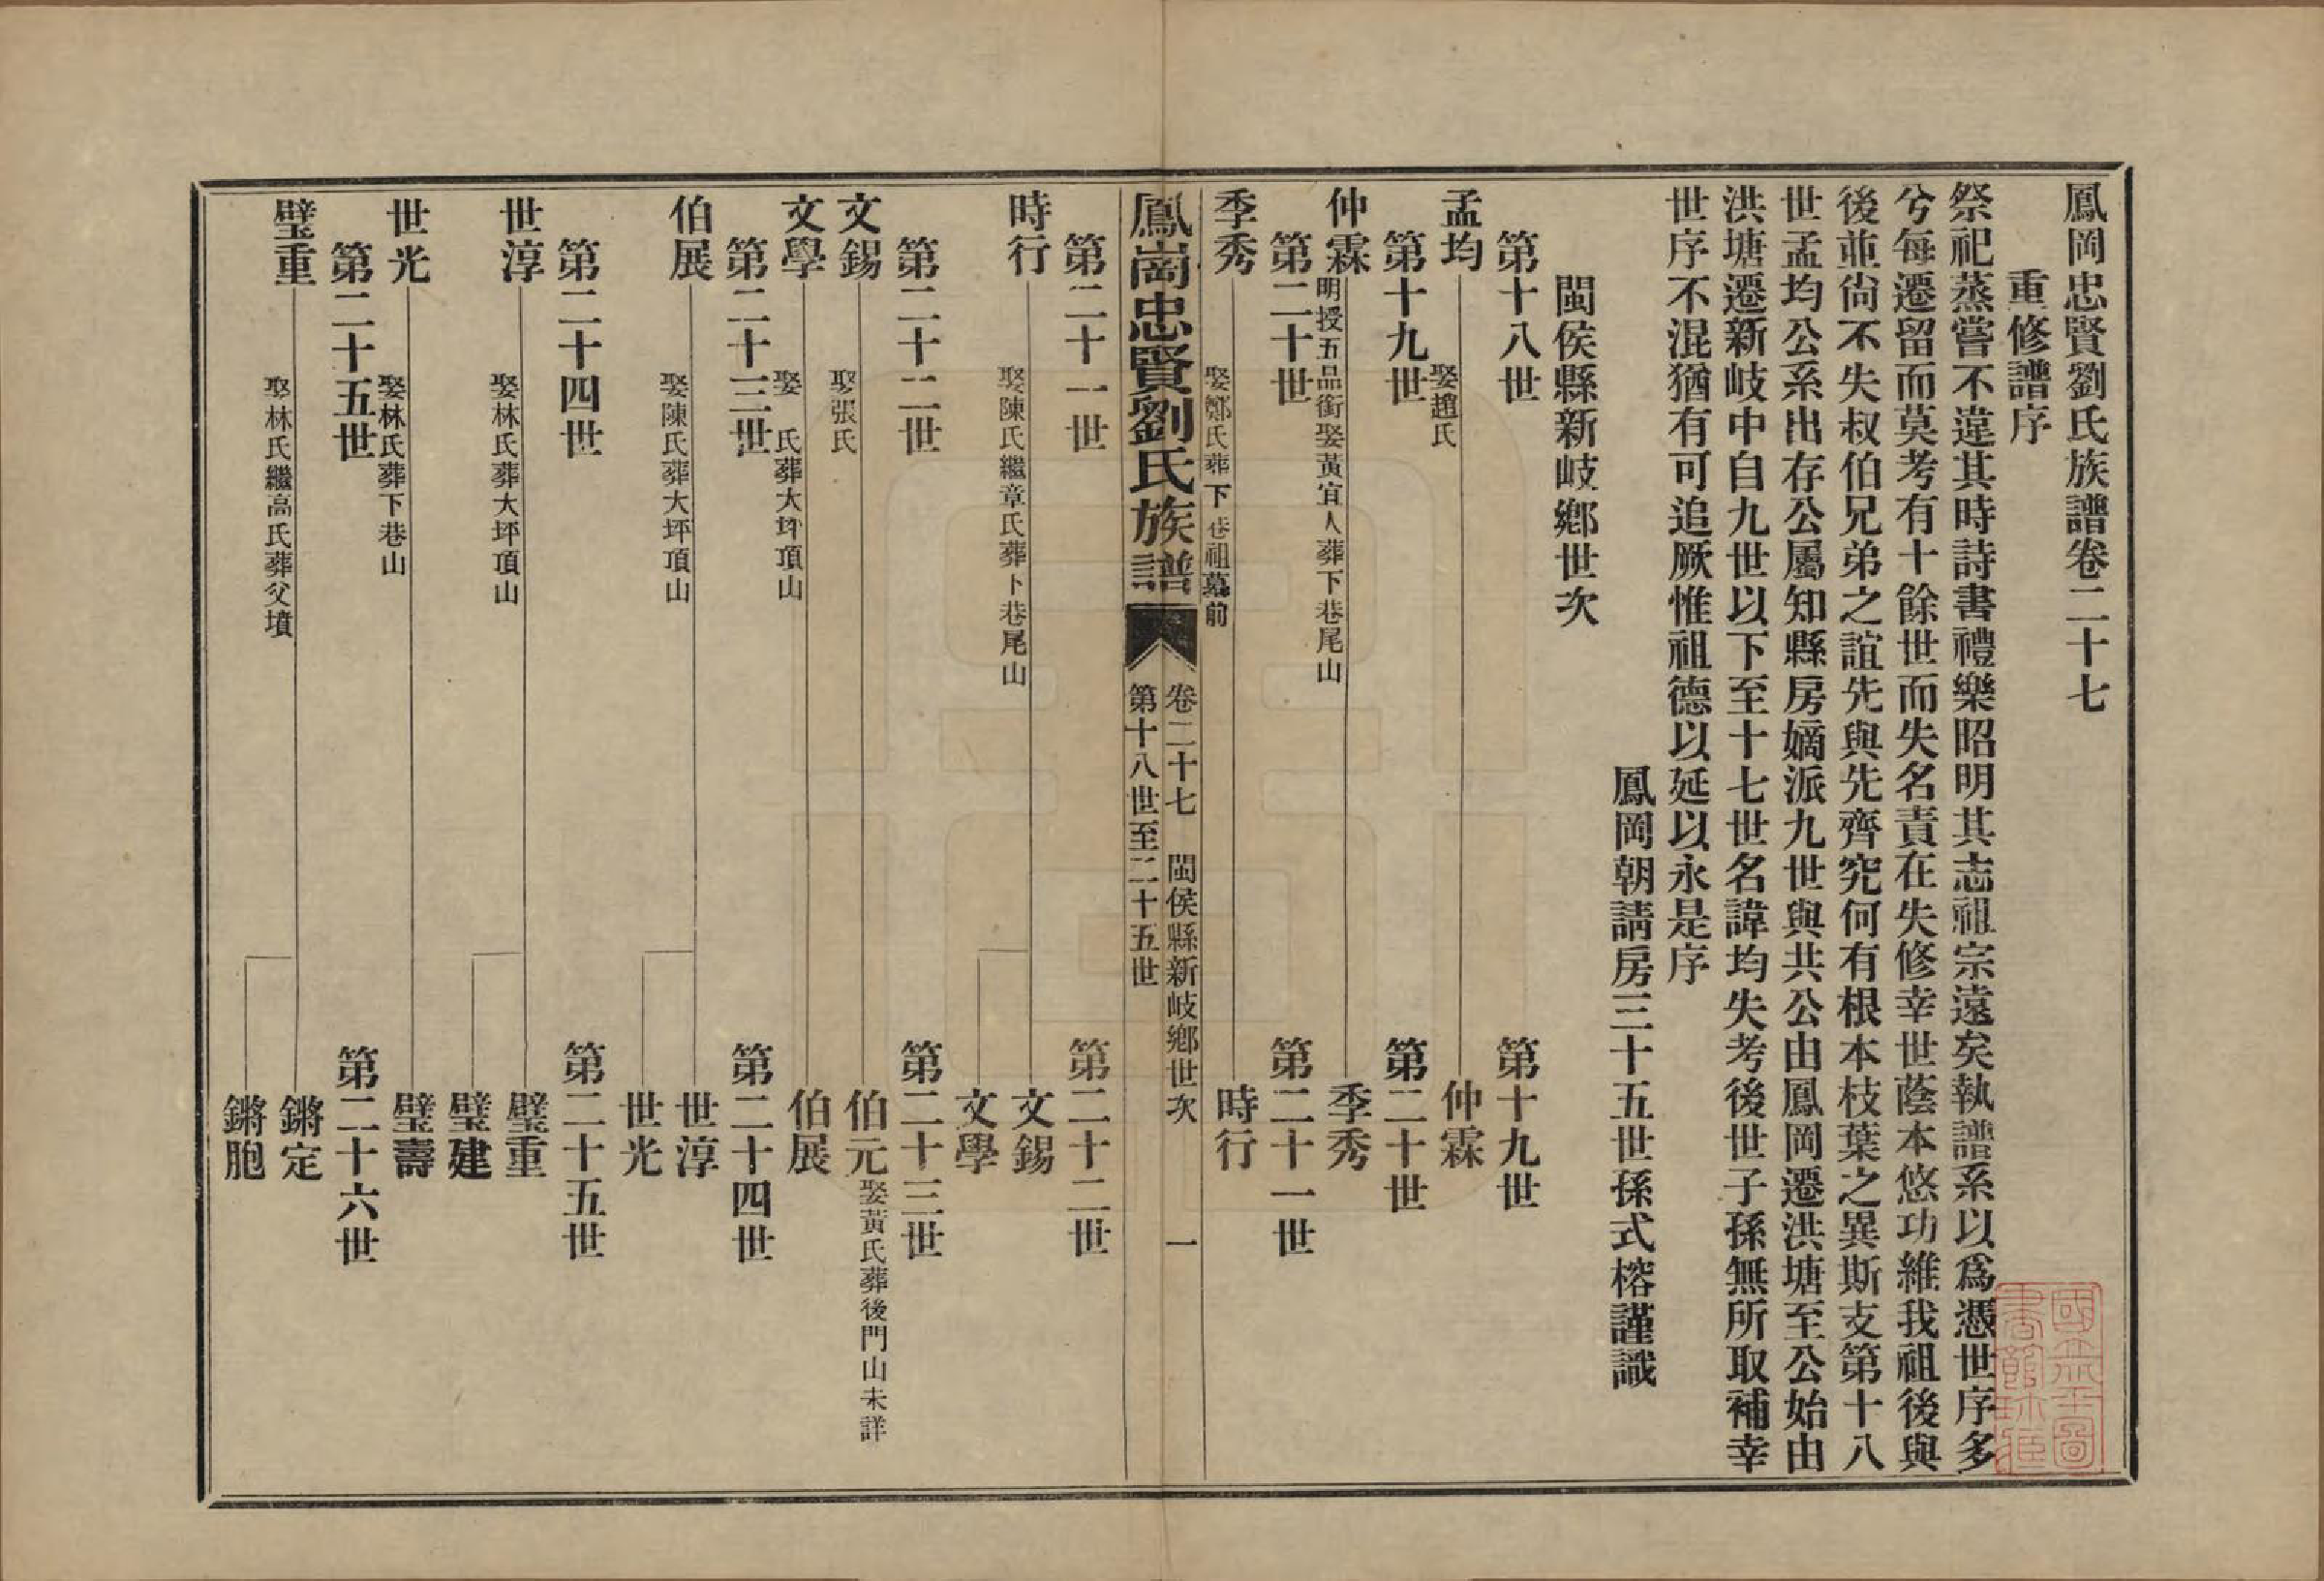 鳳岡忠賢劉氏族譜卷二十七
重修譜序
祭祀蒸嘗不違其時詩書禮樂昭明其志祖宗遠矣執譜系以爲憑世序多
兮每遷留而莫考有十餘世而失名責在失修幸世蔭本悠功維我祖後與
後並尙不失叔伯兄弟之誼先與先齊究何有根本枝葉之異斯支第十八
世孟均公系出存公屬知縣房嫡派九世與共公由鳳岡遷洪塘至公始由
洪塘遷新岐中自九世以下至十七世名諱均失考後世子孫無所取補幸
世序不混猶有可追厥惟祖德以延以永是序
鳳岡朝請房三十五世孫式榕謹識
閩侯縣新岐鄉世次
第十八世
第十九世
孟均
娶趙氏
仲霖
第十九世
第二十世
仲霖
明授五品銜娶黃宜人葬下巷尾山
季秀
第二十世
第二十一世
季秀
娶鄭氏葬下巷祖墓前
時行
鳳崗忠賢劉氏族譜
卷二十七 閩侯縣新岐鄉世次 一
第十八世至二十五世
第二十一世
第二十二世
時行
娶陳氏繼章氏葬下巷尾山
文錫
文學
第二十二世
第二十三世
文錫
娶張氏
伯元
娶黃氏葬後門山未詳
文學
娶 氏葬大坪頂山
伯展
第二十三世
第二十四世
伯展
娶陳氏葬大坪頂山
世淳
世光
第二十四世
第二十五世
世淳
娶林氏葬大坪頂山
璧重
璧建
世光
娶林氏葬下巷山
璧壽
第二十五世
第二十六世
璧重
娶林氏繼高氏葬父墳
鏘定
鏘胞
國立北平圖
書館珍藏